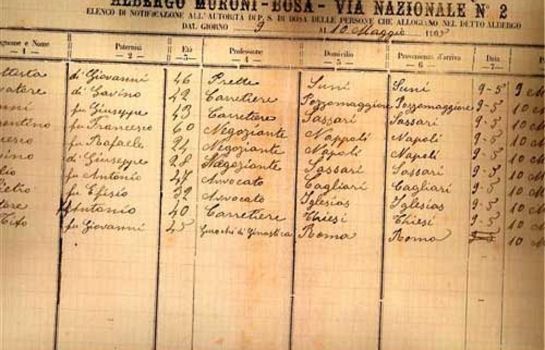 ALBERGO MORONI-BOSA- VIA NAZIONALE N° 2
ELENCO DI NOTIFICAZIONE ALL'AUTORITA DI P. S. DI BOSA DELLE PERSONE CHE ALLOGIANO NEL DETTO ALBERGO
DAL GIORNO 9 AL 10 Maggio
gnome e Nome Paternità Età Professione Domicilio Provenienza d'arrivo Data
1 2 3 4 5 6 7
di Giovanni 46 Prette Suni Suni 9-5 9 M
vatore di Gavino 42 Carretiere Pozzomaggiore Pozzomaggiore 9-5 10 M
fu Giuseppe 43 Carretiere Sassari Sassari 9-5 10 M
entino fu Francesco 60 Negoziante Nappoli Napoli 9-5 10 M
cesco fu Rafaele 24 Negoziante Nepoli Napoli 9-5 10 M
vino di Giuseppe 28 Negoziante Sassari Sassari 9-5 10 M
lio fu Antonio 47 Avvocato Cagliari Cagliari 9-5 10 M
fu Efisio 32 Avvocato Iglesias Iglesias 9-5 10 M
Antonio 40 Carretiere Thiesi Thiesi 9-5 10 M
Tito fu Giovanni 45 Giuochi di Ginastica Roma Roma 10 M